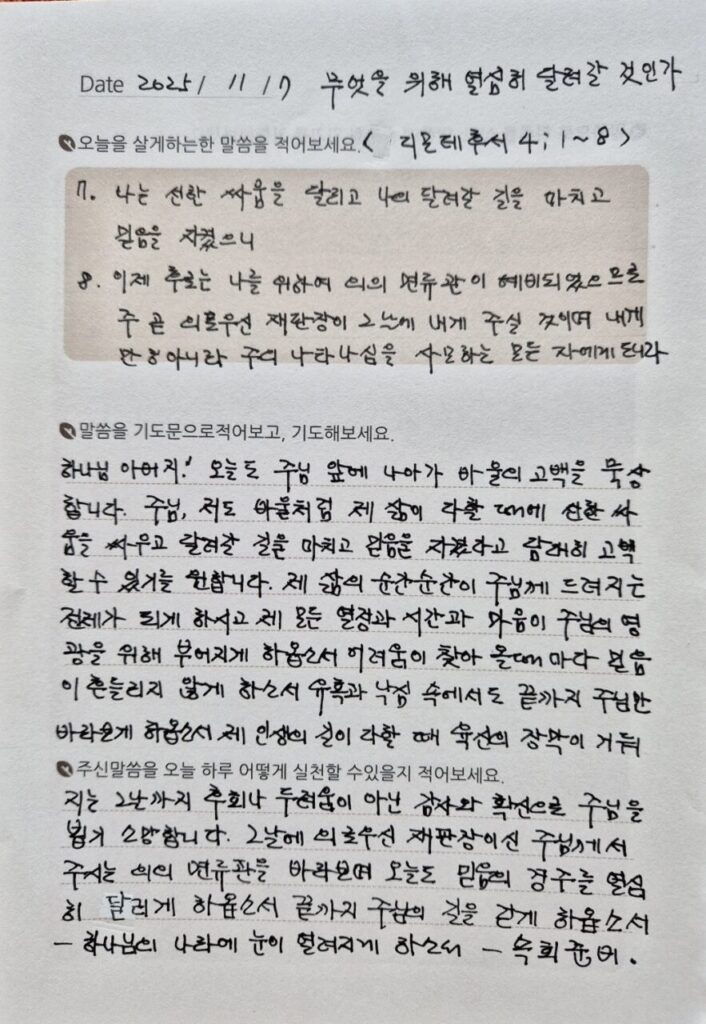 Date 2025 / 11 / 7 무엇을 위해 열심히 달려갈 것인가
오늘을 살게하는한 말씀을 적어보세요. < 디모데후서 4 ; 1~8 >
7. 나는 선한 싸움을 달리고 나의 달려갈 길을 마치고
믿음을 지켰으니
8. 이제 후로는 나를 위하여 의의 면류관이 예비되었으므로
주 곧 의로우신 재판장이 그날에 내게 주실 것이며 내게
만 아니라 주의 나타나심을 사모하는 모든 자에게 도니라
말씀을 기도문으로적어보고, 기도해보세요.
하나님 아버지! 오늘도 주님 앞에 나아가 바울의 고백을 묵상
합니다. 주님, 저도 바울처럼 제 삶이 다할 때에 선한 싸
움을 싸우고 달려갈 길을 마치고 믿음을 지켰다고 담대히 고백
할 수 있기를 원합니다. 제 삶의 순간순간이 주님께 드려지는
전제가 되게 하시고 제 모든 열정과 시간과 마음이 주님의 영
광을 위해 부어지게 하옵소서 어려움이 찾아 올때 마다 믿음
이 흔들리지 않게 하소서 유혹과 낙심 속에서도 끝까지 주님만
바라보게 하옵소서 제 인생의 길이 다할 때 육신의 장막이 거둬
주신말씀을 오늘 하루 어떻게 실천할 수있을지 적어보세요.
지는 그날까지 후회나 두려움이 아닌 감사와 확신으로 주님을
뵙기 소망합니다. 그날에 의로우신 재판장이신 주님께서
주시는 의의 면류관을 바라보며 오늘도 믿음의 경주를 열심
히 달리게 하옵소서 끝까지 주님의 길을 걷게 하옵소서
– 하나님의 나라에 눈이 열려지게 하소서 – 속회준비.